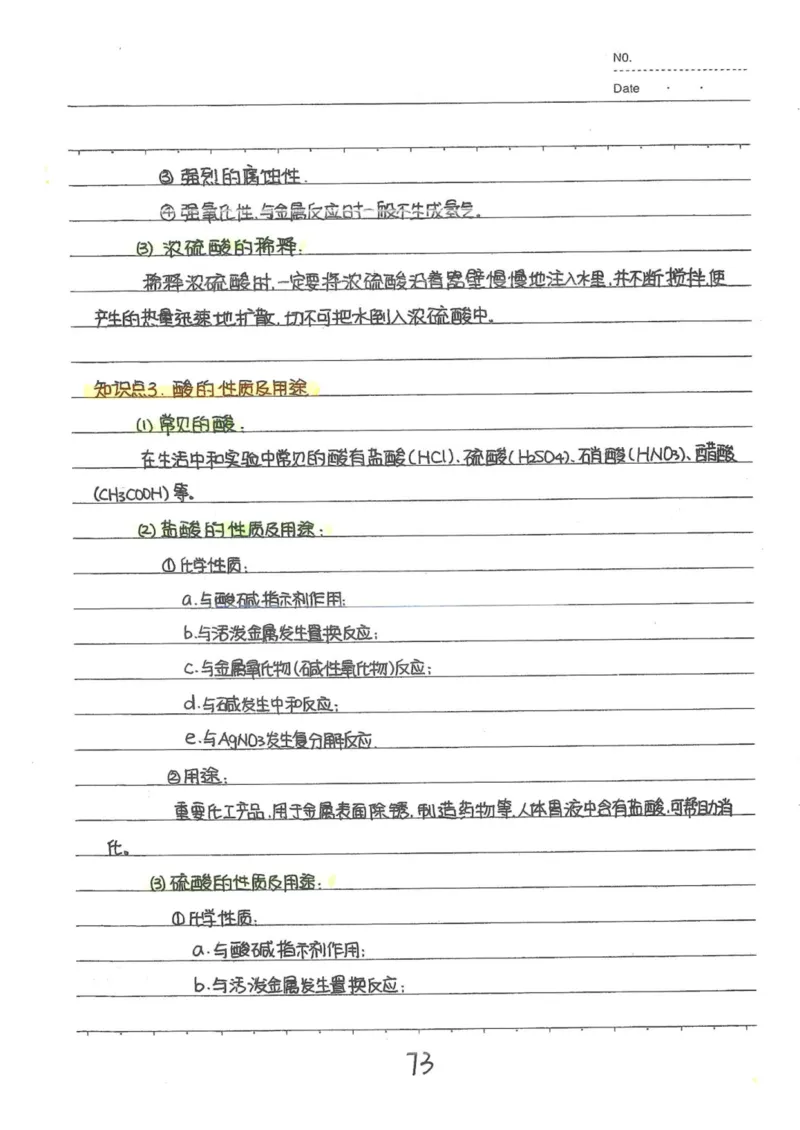 NO.
Date
③ 强烈的腐蚀性.
④ 强氧化性,与金属反应时一般不生成氢气。
(3) 浓硫酸的稀释:
稀释浓硫酸时,一定要将浓硫酸沿着器壁慢慢地注入水里,并不断搅拌,使
产生的热量迅速地扩散,切不可把水倒入浓硫酸中。
知识点3. 酸的性质及用途
(1) 常见的酸:
在生活中和实验中常见的酸有盐酸(HCl)、硫酸(H2SO4)、硝酸(HNO3)、醋酸
(CH3COOH)等。
(2) 盐酸的性质及用途:
①化学性质:
a.与酸碱指示剂作用;
b.与活泼金属发生置换反应;
c.与金属氧化物(碱性氧化物)反应;
d.与碱发生中和反应;
e.与AgNO3发生复分解反应.
②用途:
重要化工产品,用于金属表面除锈,制造药物等,人体胃液中含有盐酸,可帮助消
化。
(3) 硫酸的性质及用途:
①化学性质:
a.与酸碱指示剂作用;
b.与活泼金属发生置换反应;
73